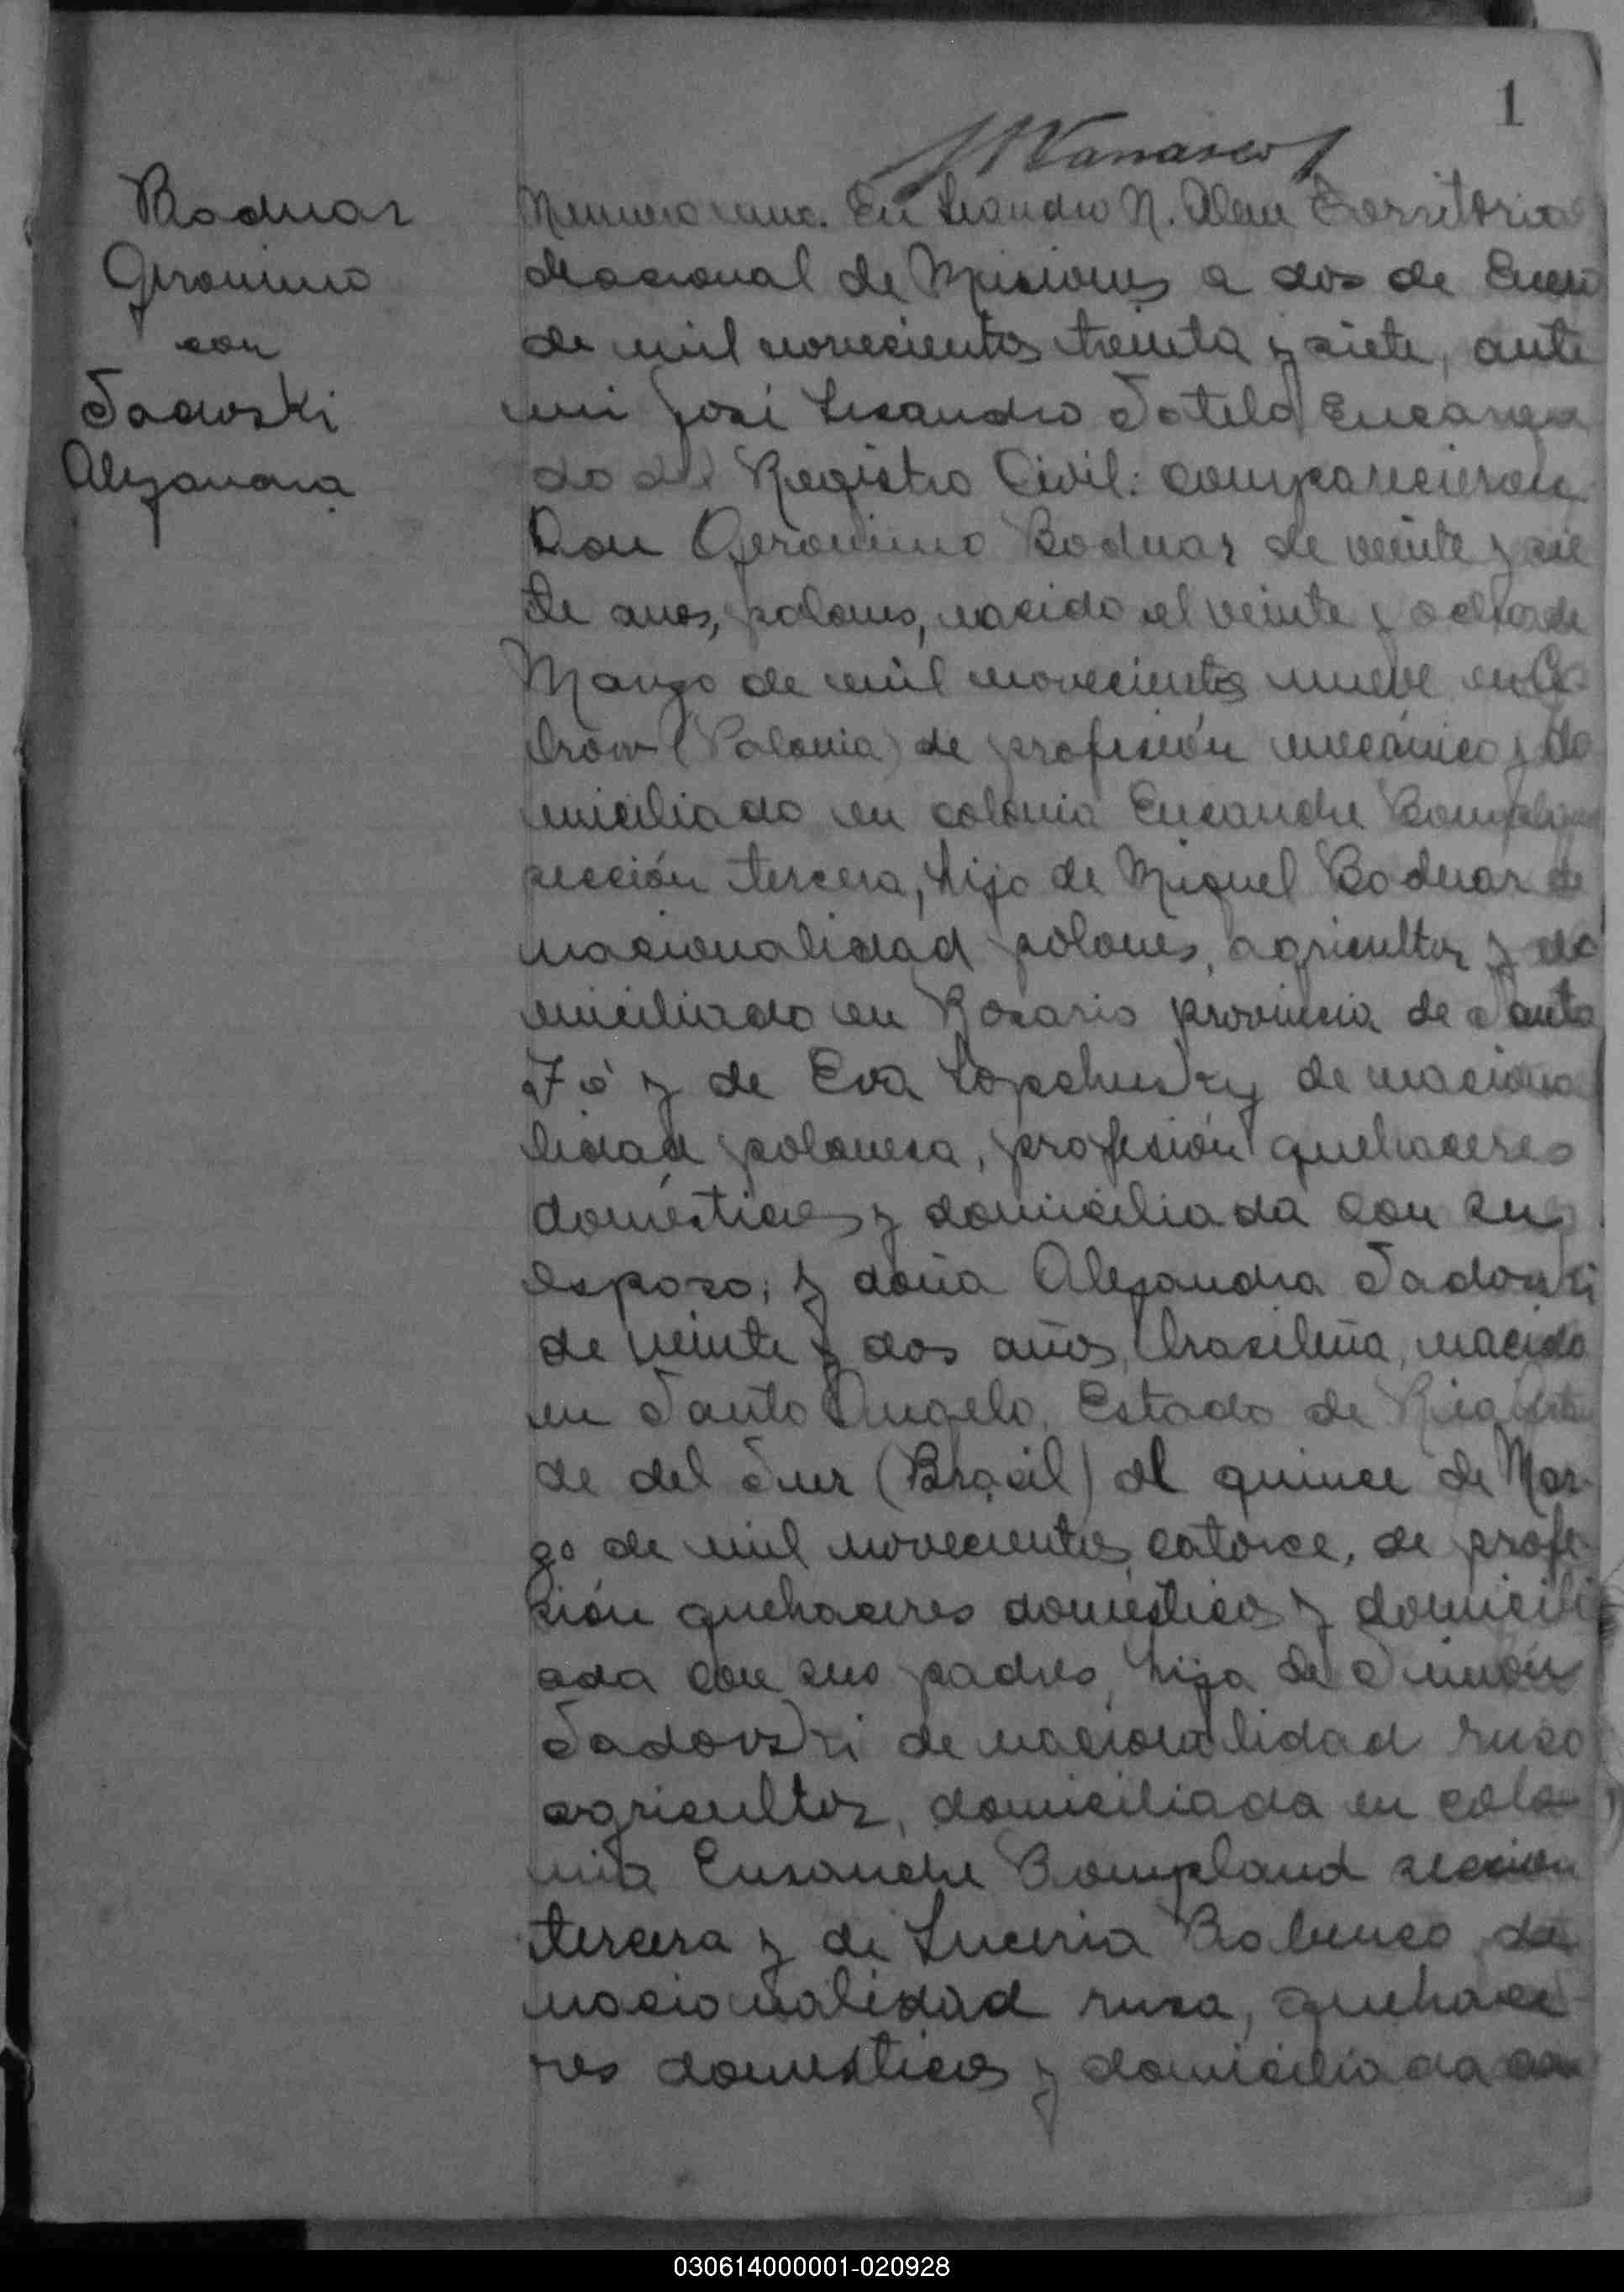 1
Bodnar
Geronimo
con
Sadoski
Alejandra
Numero uno. En Leandro N. Alem Territorio
Nacional de Misiones a dos de Enero
de mil novecientos treinta y siete, ante
mi José Lisandro Sotelo Encarga
do del Registro Civil: comparecieron
Don Geronimo Bodnar de veinte y sie
te anos, polones, nacido el veinte y ocho de
Marzo de mil novecientos nueve en
(Polonia) de profesión mecánico y do
miciliado en colonia Ensanche Bompland
sección tercera, hijo de Miguel Bodnar de
nacionalidad polones, agricultor y do
miciliado en Rosario provincia de Santa
Fé y de Eva de naciona
lidad polonesa, profesión quehaceres
domésticos y domiciliada con su
esposo; y doña Alejandra Sadovski
de veinte y dos años, brasileña, nacida
en Santo Angelo, Estado de Rio Gran
de del Sur (Brasil) el quince de Mar-
zo de mil novecientos catorce, de profe-
sión quehaceres domésticos y domicili
ada con sus padres, hija de Simón
Sadovski de nacionalidad ruso
agricultor, domiciliada en colo
nia Ensanche Bompland seccion
tercera y de Luceria Babenco de
nacionalidad rusa, quehace-
res domesticos y domiciliada con
030614000001-020928